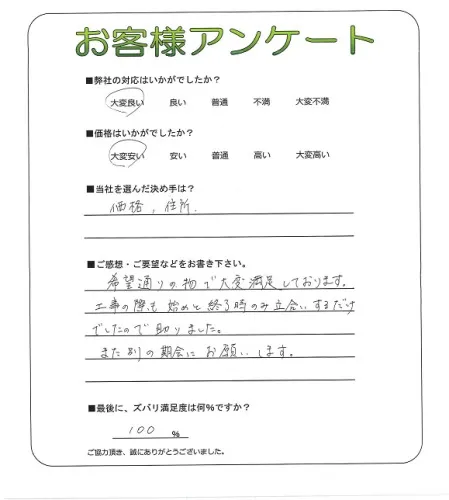 お客様アンケート
■弊社の対応はいかがでしたか?
大変良い 良い 普通 不満 大変不満
■価格はいかがでしたか?
大変安い 安い 普通 高い 大変高い
■当社を選んだ決め手は?
価格，住所．
■ご感想・ご要望などをお書き下さい。
希望通りの物で大変満足しております。
工事の際も始めと終了時のみ立合いするだけ
でしたので助りました。
また別の期会にお願いします。
■最後に、ズバリ満足度は何%ですか?
100 %
ご協力頂き、誠にありがとうございました。